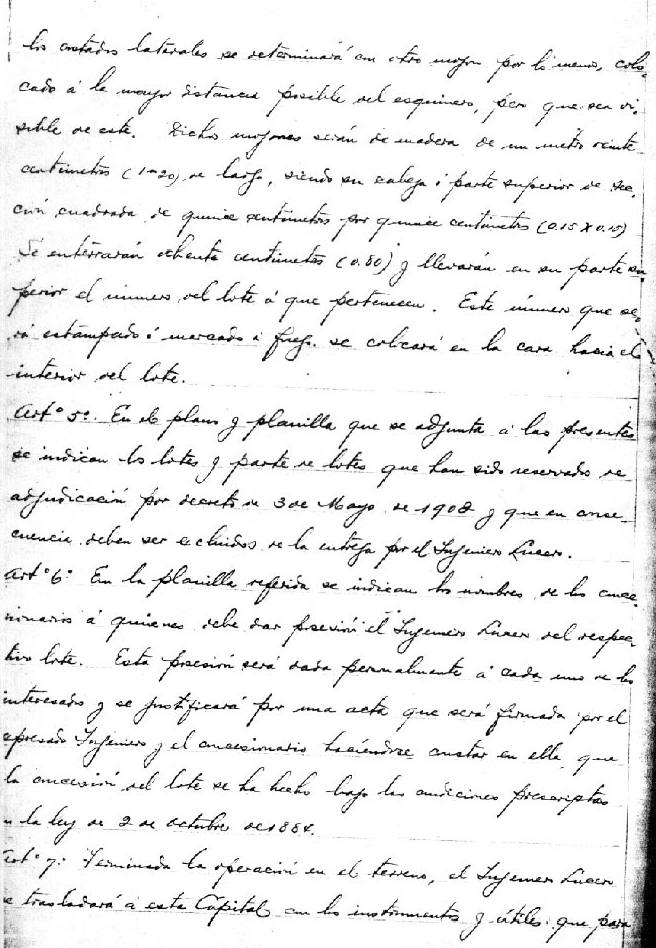 los costados laterales se determinará con otro mojon por lo menos, colo-
cado á la mayor distancia posible del esquinero, pero que sea vi-
sible de este. Dichos mojones serán de madera de un metro veinte
centimetros (1m20) de largo, siendo su cabeza ó parte superior de sec-
ción cuadrada de quince centimetros por quince centimetros (0.15 X 0.15)
Se enterrarán ochenta centimetros (0.80) y llevarán en su parte su-
perior el número del lote á que pertenecen. Este número que se-
rá estampado ó marcado á fuego se colocará en la cara hacia el
interior del lote.
Artº 5º. En el plano y planilla que se adjunta á las presentes
se indican los lotes y parte de lotes que han sido reservados de
adjudicación por decreto de 3 de Mayo de 1902 y que en conse-
cuencia deben ser excluidos de la entrega por el Ingeniero Lucero.
Artº 6º En la planilla referida se indican los nombres de los conce-
sionarios á quienes debe dar posesión el Ingeniero Lucero del respec-
tivo lote. Esta posesión será dada personalmente á cada uno de los
interesados y se justificará por una acta que será firmada por el
expresado Ingeniero y el concesionario haciéndose constar en ella que
la concesión del lote se ha hecho bajo las condiciones prescriptas
en la ley de 2 de Octubre de 1884.
Artº 7º Terminada la operación en el terreno, el Ingeniero Lucero
se trasladará á esta Capital con los instrumentos y útiles que para